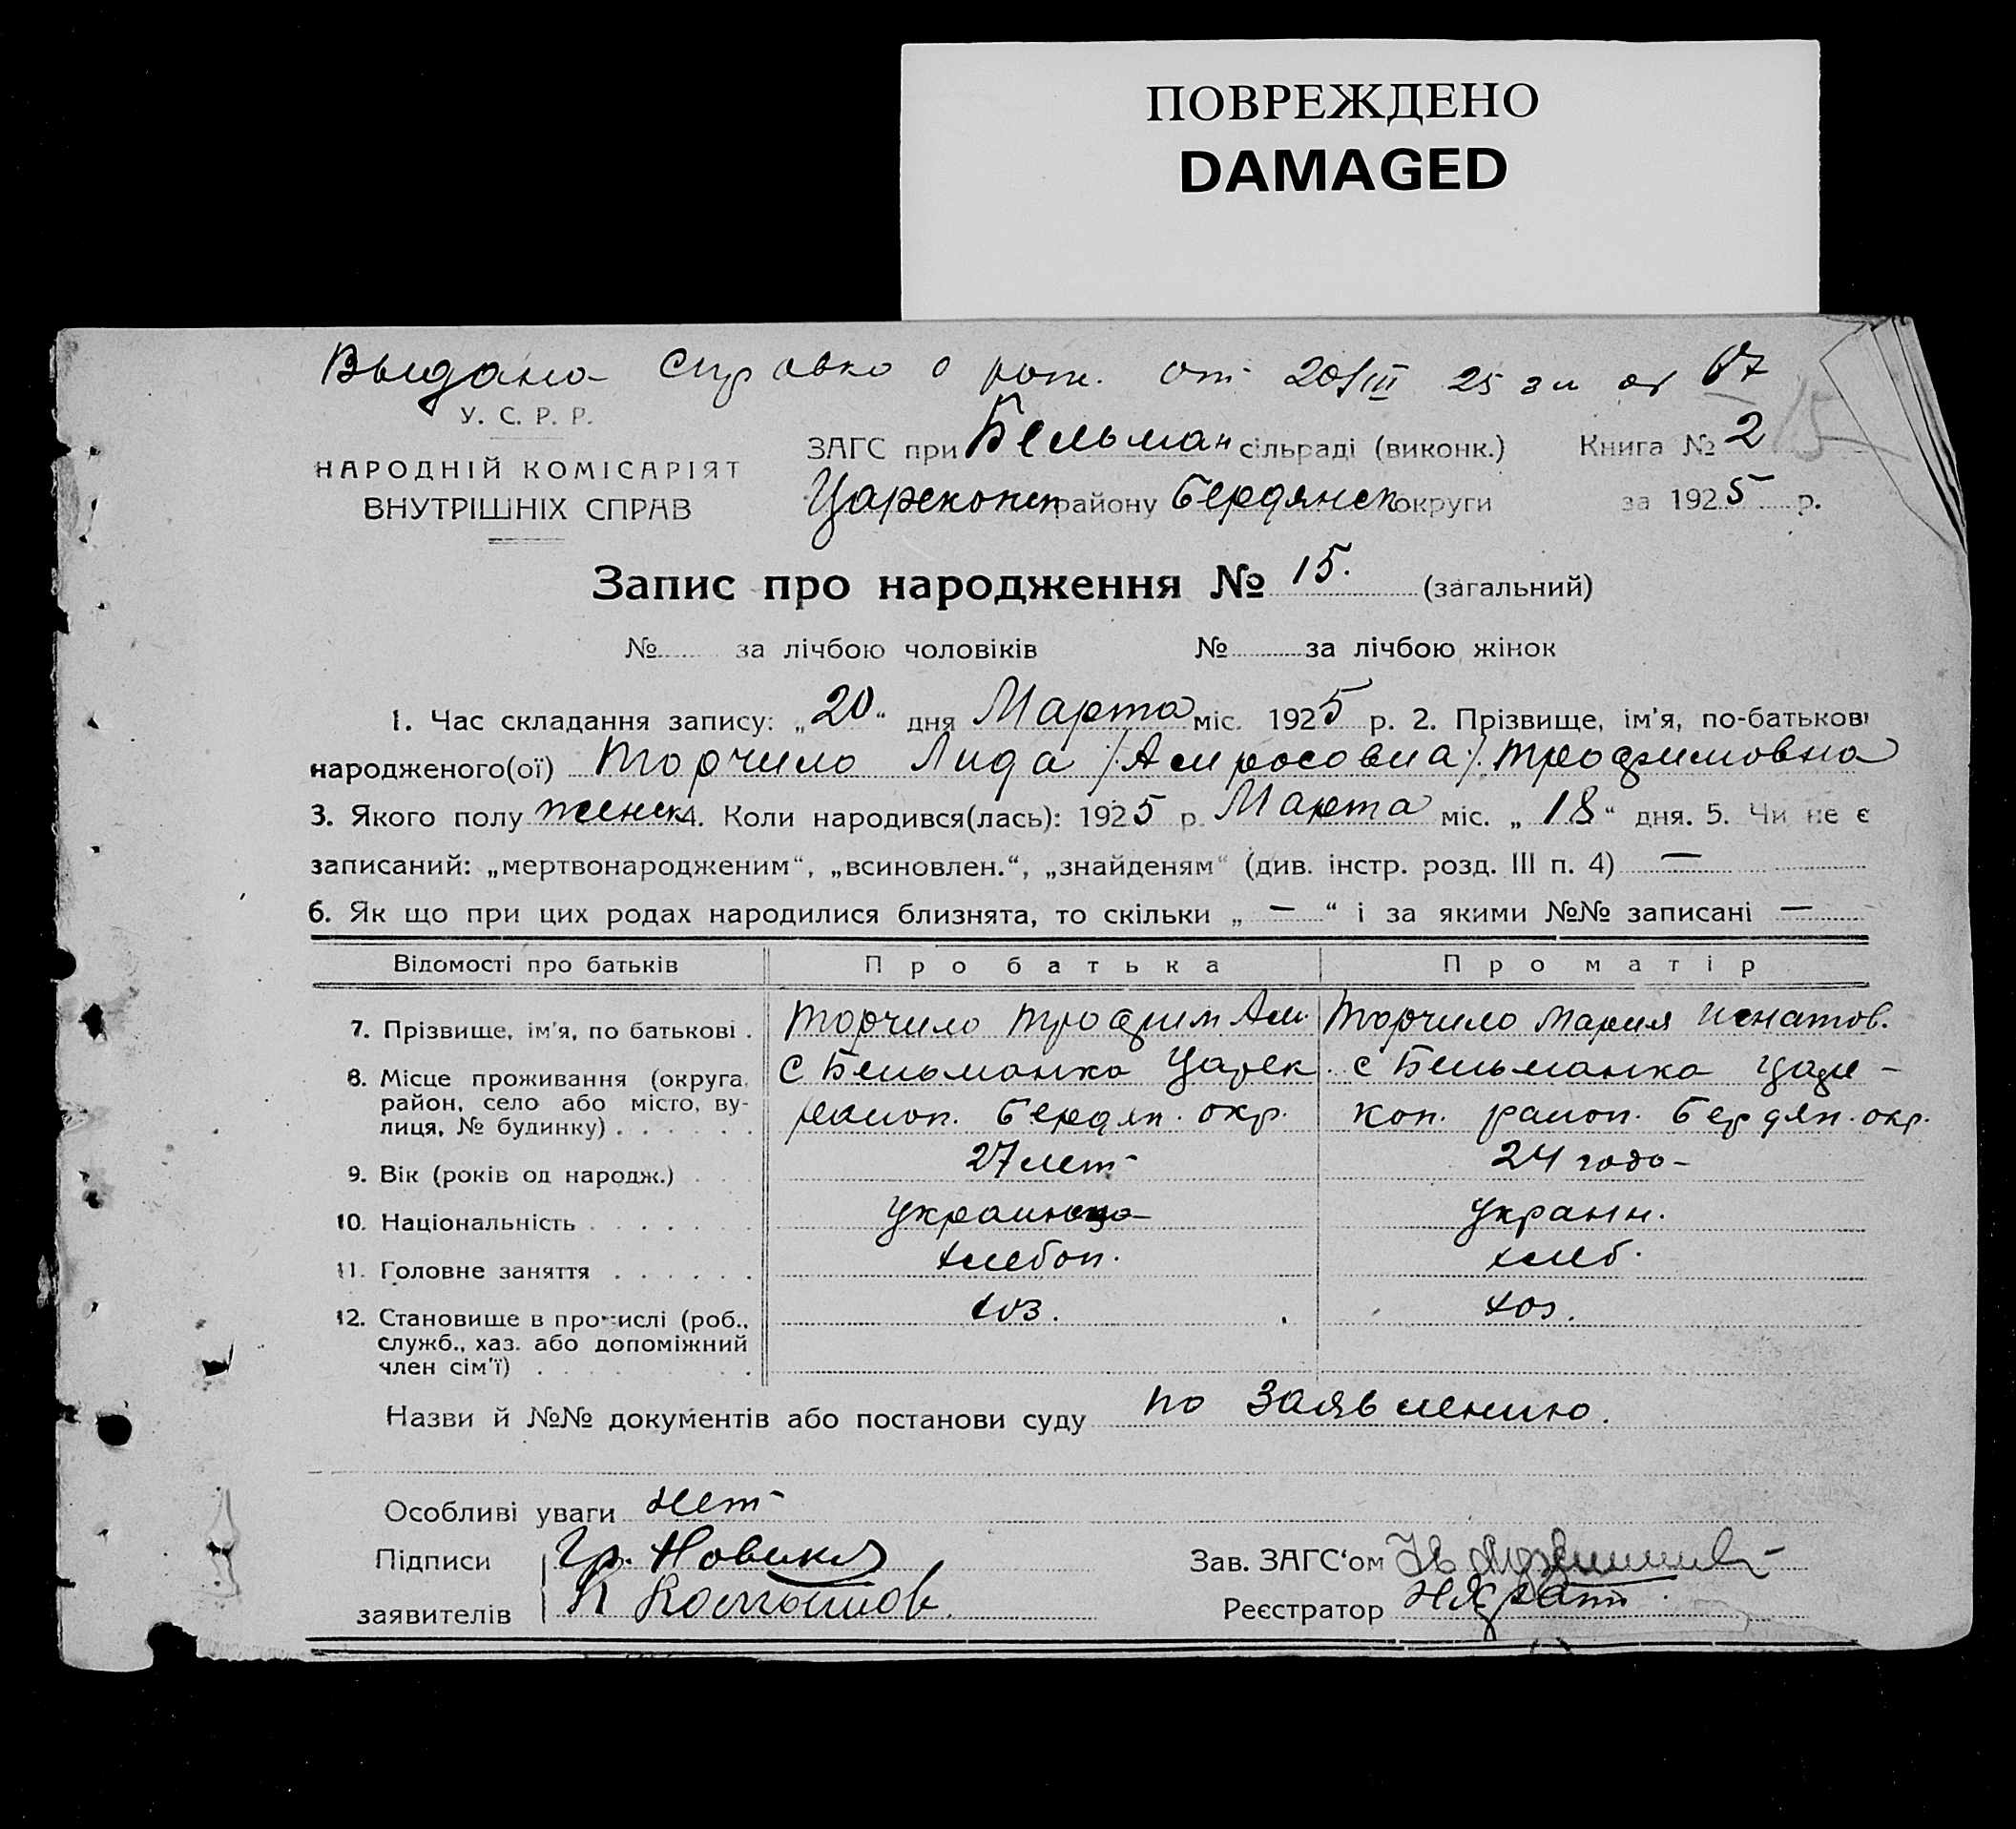 ПОВРЕЖДЕНО
DAMAGED
Выдана справка о рож. от 20/III 25 за № 67
У. С. Р. Р.
15
ЗАГС при Бельман сільраді (виконк.) Книга № 2
НАРОДНІЙ КОМІСАРІЯТ
ВНУТРІШНІХ СПРАВ
Царекон району Бердянск округи за 1925 р.
Запис про народження № 15. (загальний)
№ за лічбою чоловіків № за лічбою жінок
1. Час складання запису: „20“ дня Марта міс. 1925 р. 2. Прізвище, ім'я, по-батькові
народженого(ої) Торчило Лида /Амросовна/. Трофимовна
3. Якого полу женск 4. Коли народився(лась): 1925 р. Марта міс. „18“ дня. 5. Чи не є
записаний: „мертвонародженим“, „всиновлен.“, „знайденям“ (див. інстр. розд. III п. 4) —
6. Як що при цих родах народилися близнята, то скільки „ — “ і за якими №№ записані —
Відомості про батьків Про батька Про матір
7. Прізвище, ім'я, по батькові . Торчило Трофим Ам. Торчило Мария Игнатов.
8. Місце проживання (округа, район, село або місто, вулиця, № будинку) . . . . . . С Бельманка Царек район. Бердян. окр. с Бельманка Царекон. район. Бердян. окр.
9. Вік (років од народж.) . . . 27 лет 24 года
10. Національність . . . . . . . украинца украин.
11. Головне заняття . . . . . . хлебоп. хлеб.
12. Становище в промислі (роб., служб., хаз. або допоміжний член сім'ї) . . . . . . хоз. хоз.
Назви й №№ документів або постанови суду по заявлению.
Особливі уваги нет
Підписи Гр. Новик
заявителів К
Зав. ЗАГС‘ом
Реєстратор